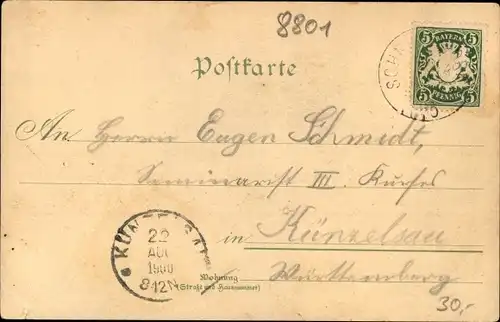 8801
BAYERN
5 5
PFENNIG
5 5
SCHN
Postkarte
An Herrn Eugen Schmidt,
Seminarist III. Kurses
in Künzelsau
Württemberg
KÜNZELSAU
22
AUG
1900
8-12N
Wohnung
(Straße und Hausnummer)
30,-